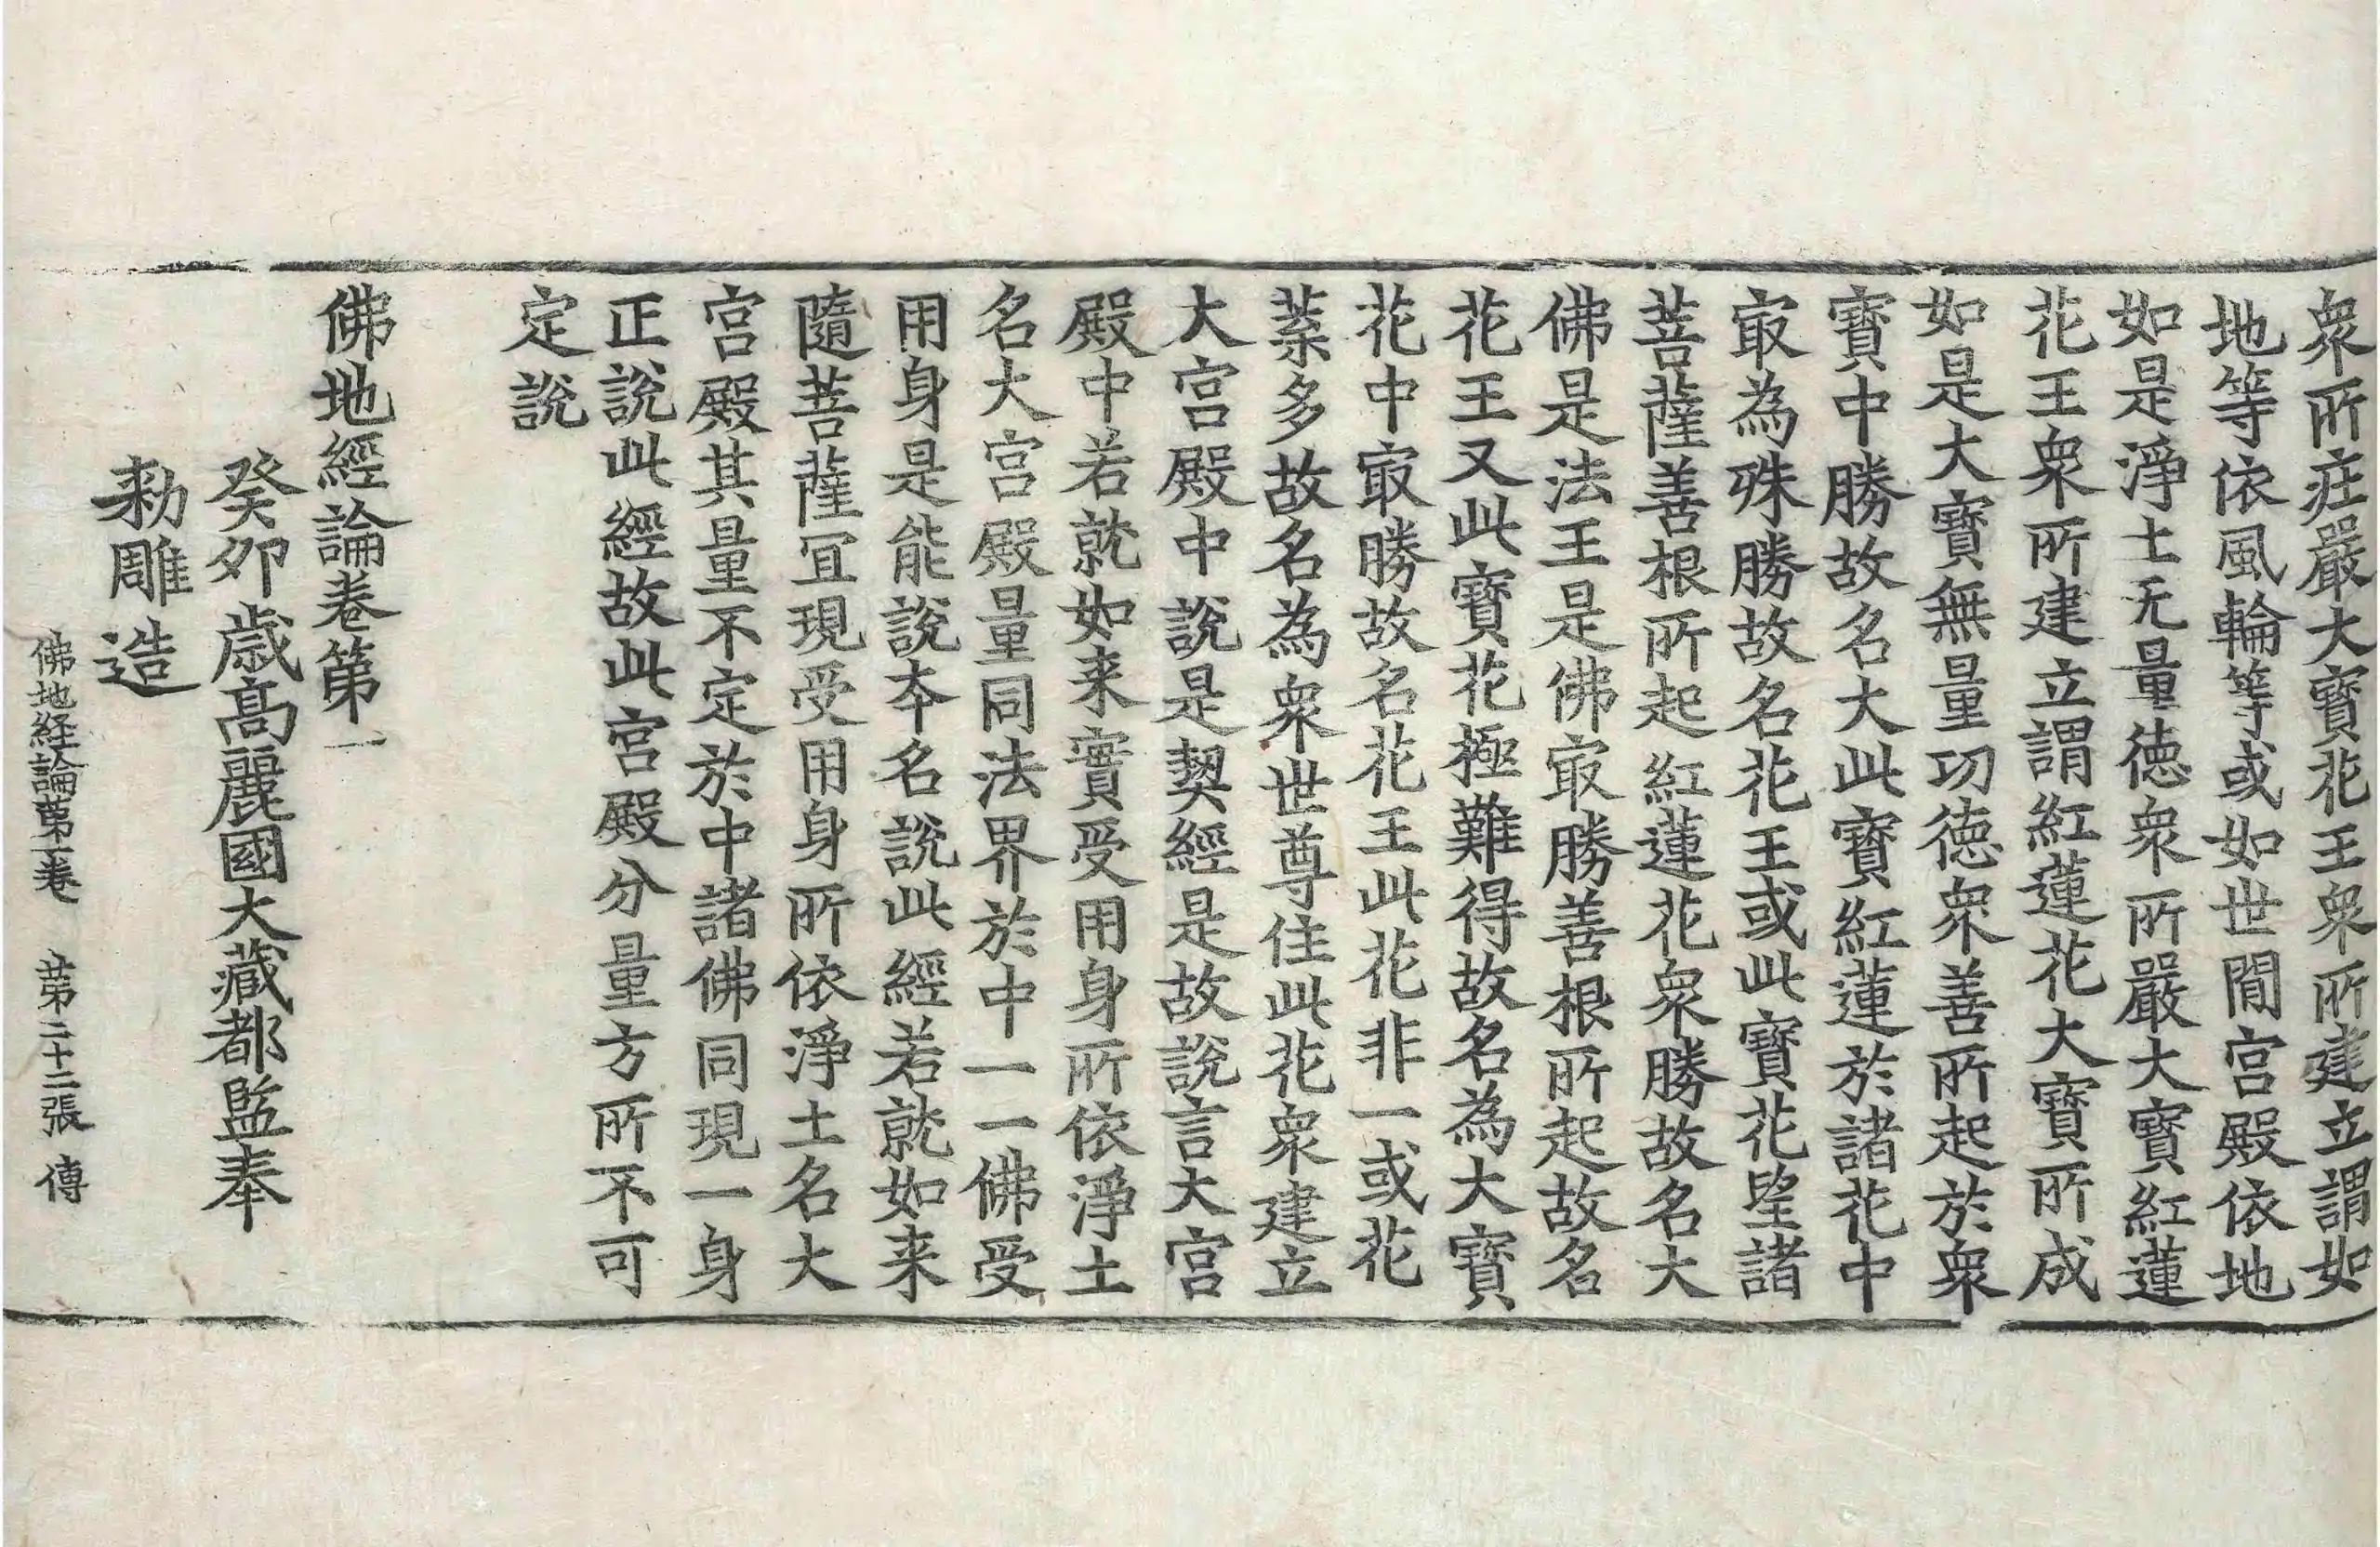 衆所莊嚴大寶花王衆所建立謂如
地等依風輪等或如世間宫殿依地
如是淨土无量德衆所嚴大寶紅蓮
花王衆所建立謂紅蓮花大寶所成
如是大寶無量功德衆善所起於衆
寶中勝故名大此寶紅蓮於諸花中
㝡為殊勝故名花王或此寶花望諸
菩薩善根所起紅蓮花衆勝故名大
佛是法王是佛㝡勝善根所起故名
花王又此寶花極難得故名為大寶
花中㝡勝故名花王此花非一或花
蘂多故名為衆世尊住此花衆建立
大宫殿中說是契經是故說言大宫
殿中若就如来實受用身所依淨土
名大宫殿量同法界於中一一佛受
用身是能說夲名說此經若就如来
隨菩薩冝現受用身所依淨土名大
宫殿其量不定於中諸佛同現一身
正說此經故此宫殿分量方所不可
定說
佛地經論卷第一
癸卯歲高麗國大藏都監奉
勑雕造
佛地経論第一卷　第二十二張　傳